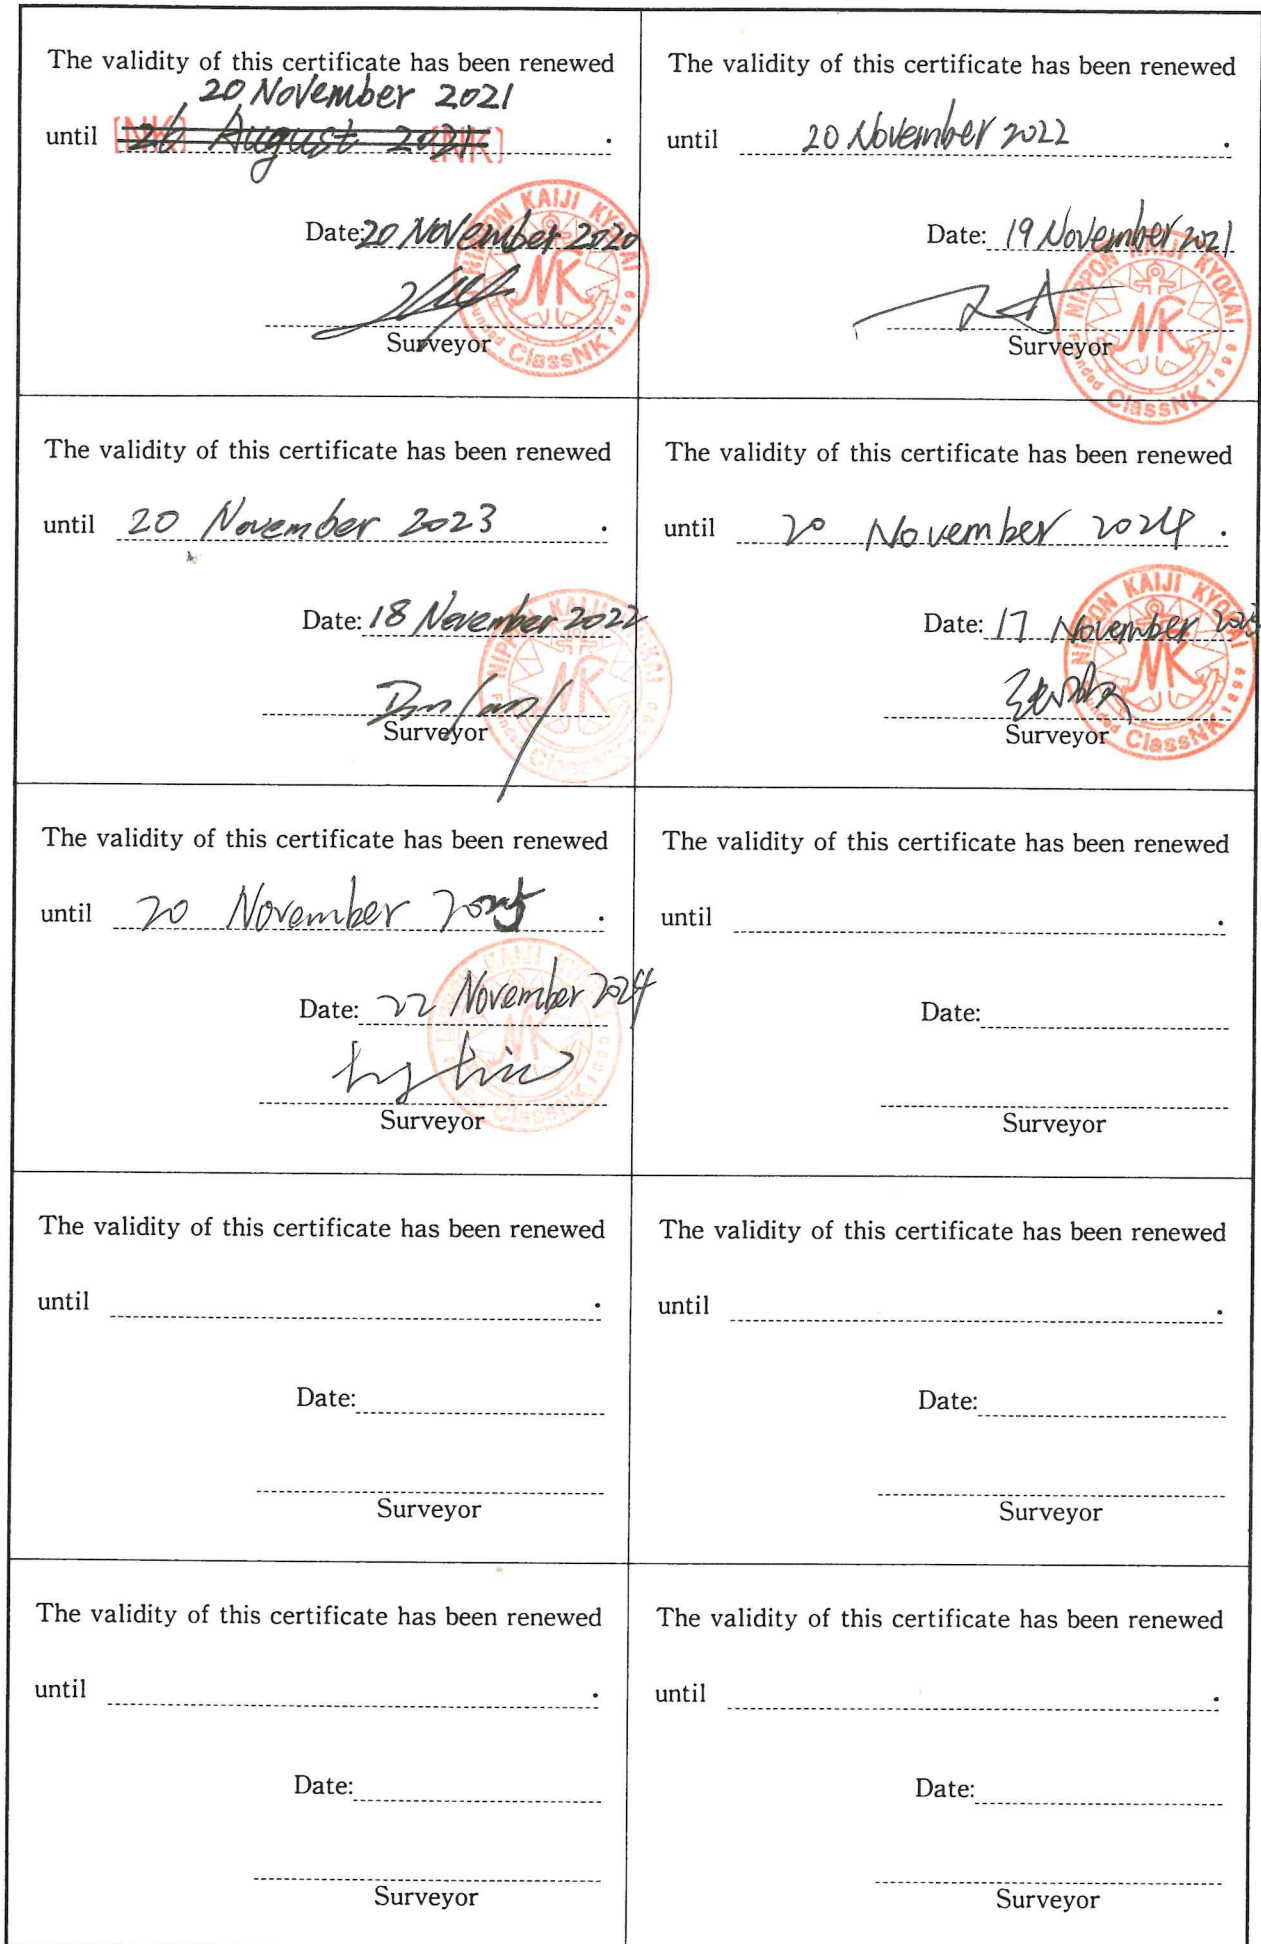 The validity of this certificate has been renewed
20 November 2021
until 26 August 2021 .
[NK] [NK]
Date: 20 November 2020
Surveyor
NIPPON KAIJI KYOKAI
NK
Founded ClassNK 1899
The validity of this certificate has been renewed
until 20 November 2022 .
Date: 19 November 2021
Surveyor
NIPPON KAIJI KYOKAI
NK
Founded ClassNK 1899
The validity of this certificate has been renewed
until 20 November 2023 .
Date: 18 November 2022
Surveyor
NIPPON KAIJI KYOKAI
NK
Founded ClassNK 1899
The validity of this certificate has been renewed
until 20 November 2024 .
Date: 17 November 2023
Surveyor
NIPPON KAIJI KYOKAI
NK
Founded ClassNK 1899
The validity of this certificate has been renewed
until 20 November 2025 .
Date: 22 November 2024
Surveyor
NIPPON KAIJI KYOKAI
NK
Founded ClassNK 1899
The validity of this certificate has been renewed
until .
Date:
Surveyor
The validity of this certificate has been renewed
until .
Date:
Surveyor
The validity of this certificate has been renewed
until .
Date:
Surveyor
The validity of this certificate has been renewed
until .
Date:
Surveyor
The validity of this certificate has been renewed
until .
Date:
Surveyor